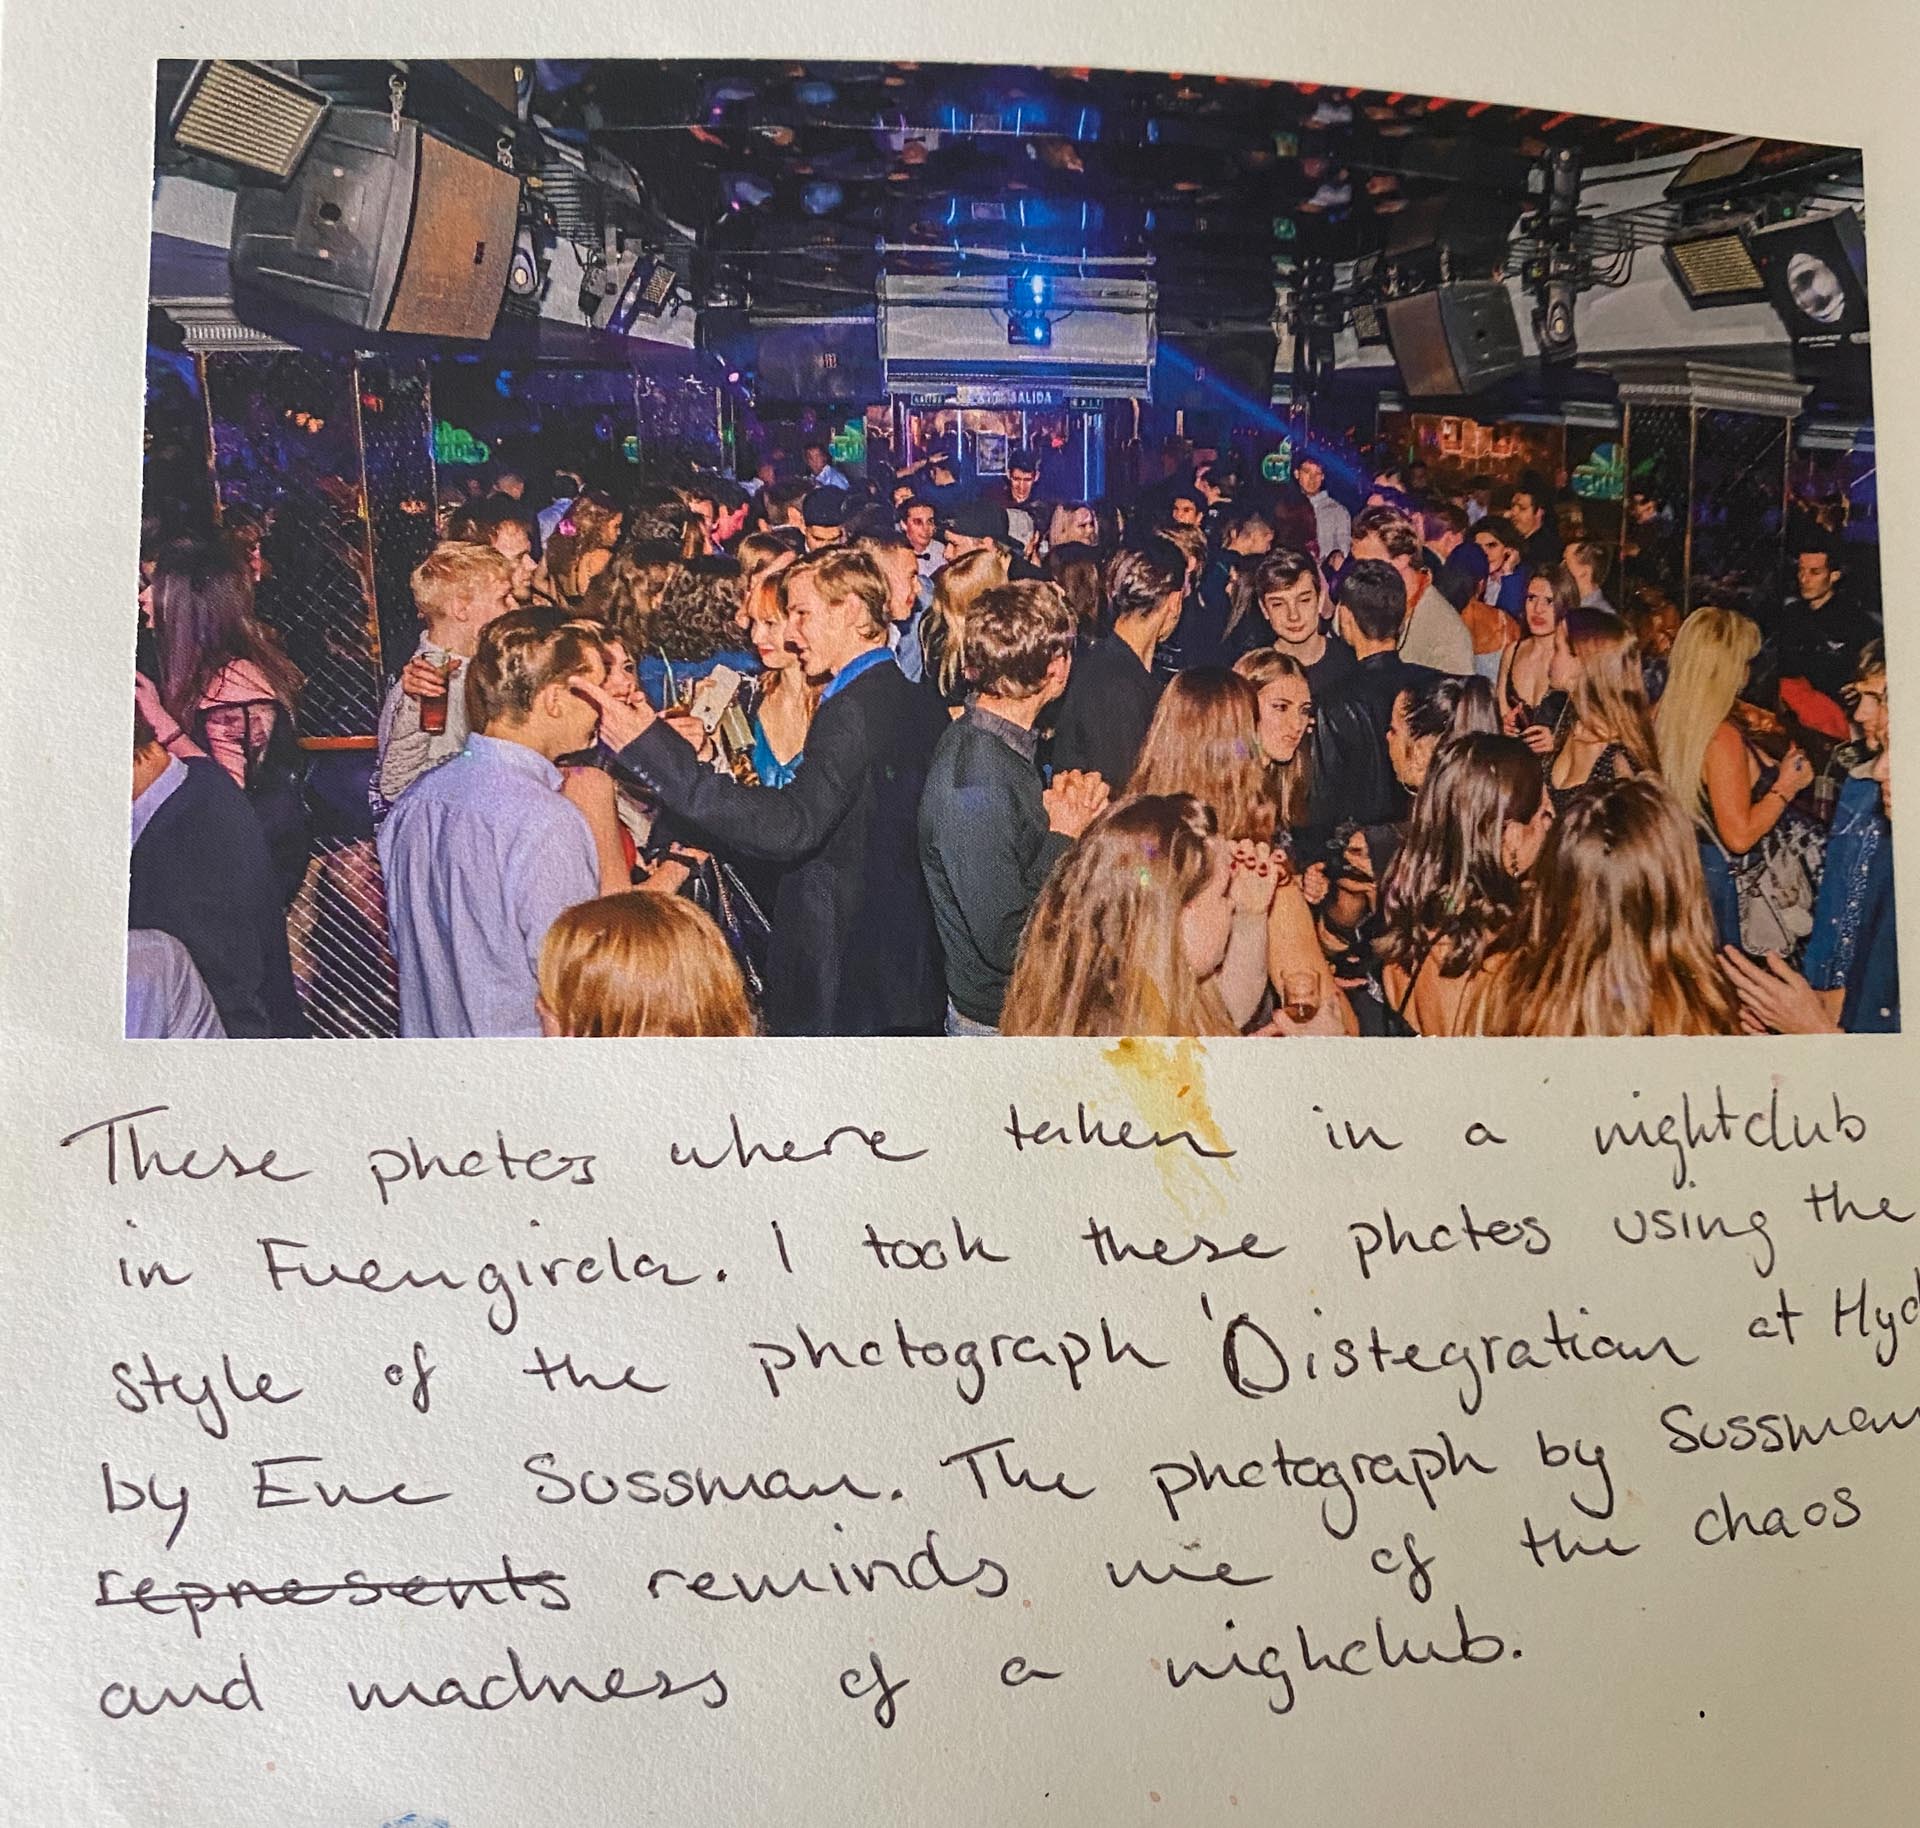 SALIDA
These photos where taken in a nightclub
in Fuengirola. I took these photos using the
style of the photograph 'Distegration at Hyd
by Eve Sussman. The photograph by Sussman
represents reminds me of the chaos
and madness of a nighclub.